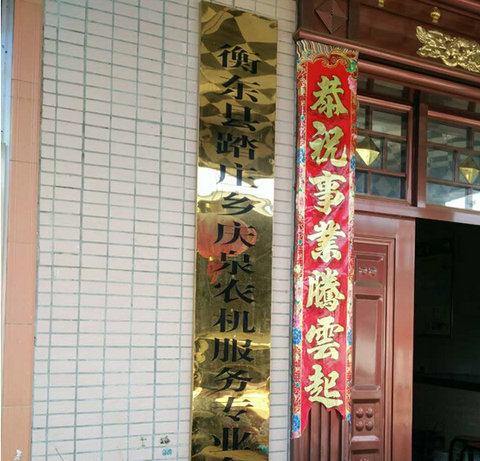 衡东县踏庄乡庆泉农机服务专业
恭祝事業騰雲起